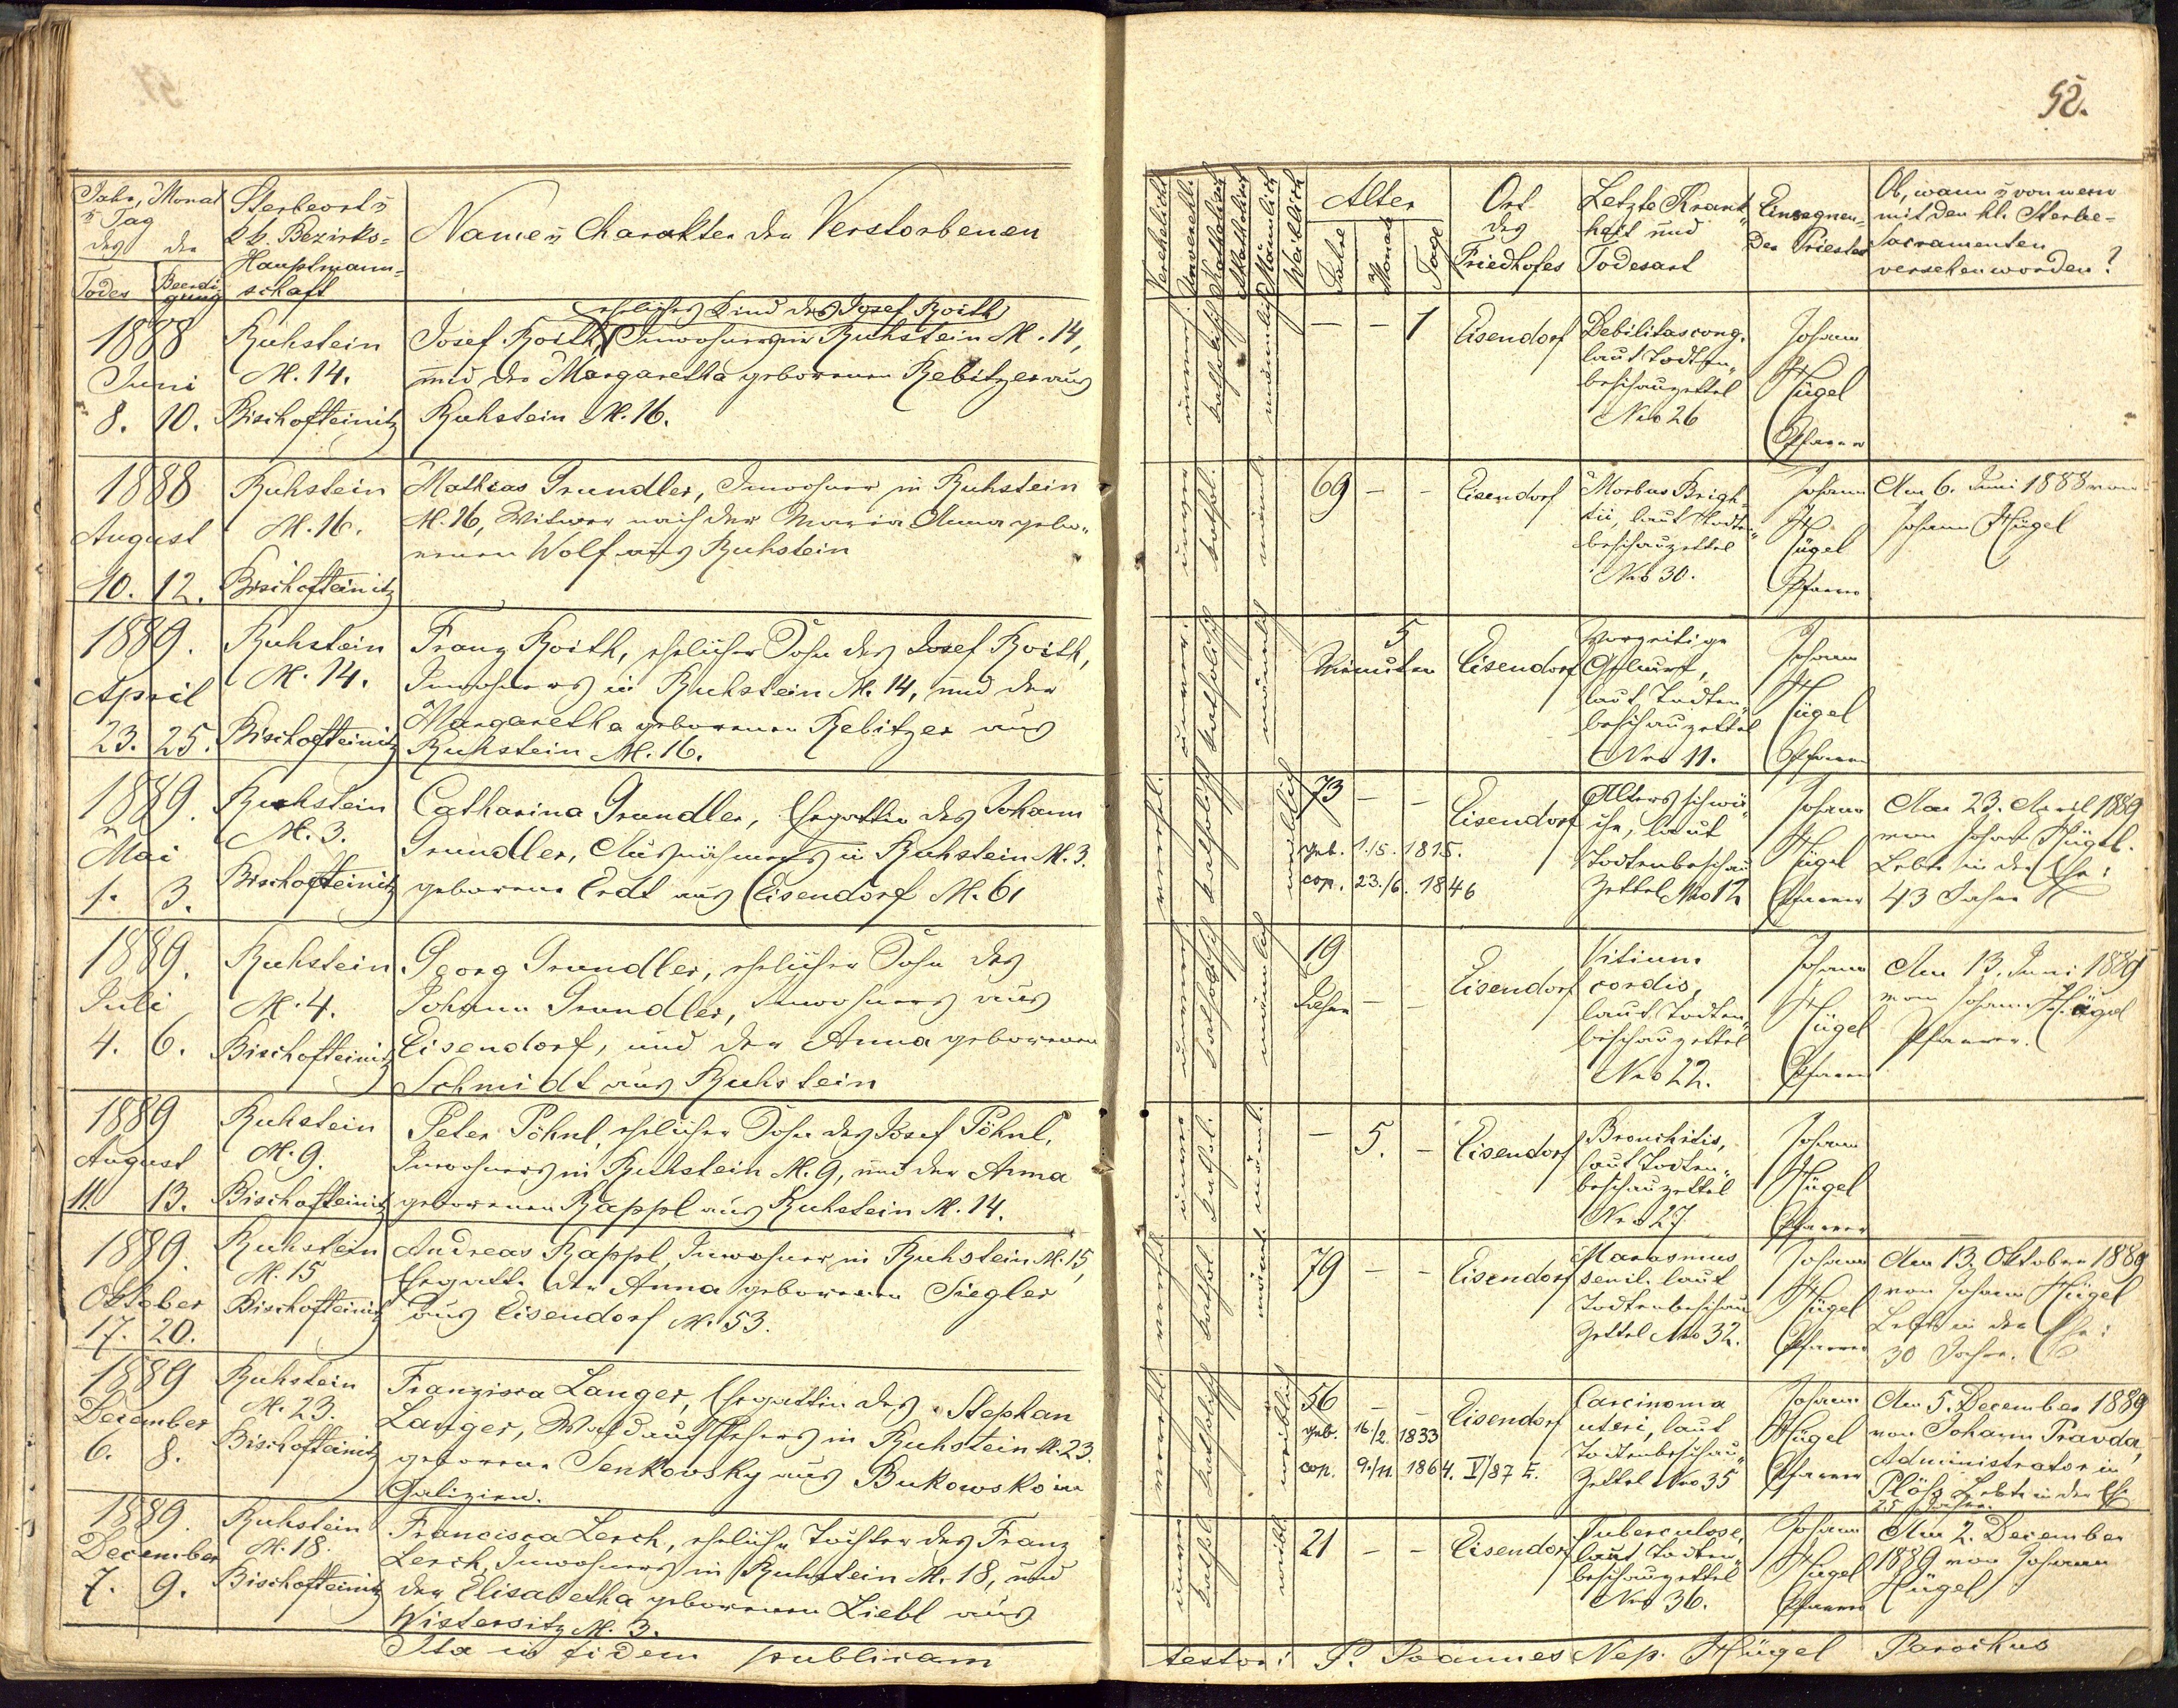 52.
Jahr, Monat
u Tag
des der
Todes Beerdi-
gung
Sterbeort u
k.k. Bezirks-
Hauptmann-
schaft
Name u Charakter der Verstorbenen
Verehelicht
Unverehl.
Katholisch
Akatholisch
Männlich
Weiblich
Alter
Jahre
Monat
Tage
Ort
des
Friedhofes
Letzte Krank-
heit und
Todesart
Einsegnen-
der Priester
Ob, wann u von wem
mit den hl. Sterbe-
Sacramenten
versehen worden?
1888
Juni
8. 10.
Ruhstein
N. 14.
Bischofteinitz
eheliches Kind des Josef Roith
Josef Roith, Inwohners in Ruhstein N. 14,
und der Margaretha geborenen Rebitzer aus
Ruhstein N. 16.
unver.
katholisch
männlich
— — 1
Eisendorf
Debilitas cong.
laut Todten-
beschauzettel
Nro 26
Johann
Hügel
Pfarrer
1888
August
10. 12.
Ruhstein
N. 16.
Bischofteinitz
Mathias Grundler, Inwohner in Ruhstein
N. 16, Witwer nach der Maria Anna gebo-
renen Wolf aus Ruhstein
unver
kathol.
männl.
69 — —
Eisendorf
Morbus Brigh-
tii, laut Todten-
beschauzettel
Nro 30.
Johann
Hügel
Pfarrer
Am 6. Juni 1888 von
Johann Hügel
1889.
April
23. 25.
Ruhstein
N. 14.
Bischofteinitz
Franz Roith, ehelicher Sohn des Josef Roith,
Inwohners in Ruhstein N. 14, und der
Margaretha geborenen Rebitzer aus
Ruhstein N. 16.
unver.
katholisch
männlich
5
Minuten
Eisendorf
Vorzeitige
Geburt,
laut Todten-
beschauzettel
Nro 11.
Johann
Hügel
Pfarrer
1889.
Mai
1. 3.
Ruhstein
N. 3.
Bischofteinitz
Catharina Grundler, Ehegattin des Johann
Grundler, Ausnähmers in Ruhstein N. 3.
geborene Erdt aus Eisendorf N. 61
verehel.
katholisch
weiblich
73 — —
geb. 1./5. 1815.
cop. 23./6. 1846
Eisendorf
Altersschwä-
che, laut
Todtenbeschau
Zettel Nro 12
Johann
Hügel
Pfarrer
Am 23. April 1889
von Johann Hügel.
Lebte in der Ehe:
43 Jahre
1889.
Juli
4. 6.
Ruhstein
N. 4.
Bischofteinitz
Georg Grundler, ehelicher Sohn des
Johann Grundler, Inwohners aus
Eisendorf, und der Anna geborenen
Schmidt aus Ruhstein
unverehel
katholisch
männlich
19
Jahre — —
Eisendorf
Vitium
cordis,
laut Todten-
beschauzettel
Nro 22.
Johann
Hügel
Pfarrer
Am 13. Juni 1889
von Johann Hügel
Pfarrer.
1889
August
11. 13.
Ruhstein
N. 9.
Bischofteinitz
Peter Pöhnl, ehelicher Sohn des Josef Pöhnl,
Inwohners in Ruhstein N. 9, und der Anna
geborenen Rappl aus Ruhstein N. 14.
unver
kathol.
männl.
— 5. —
Eisendorf
Bronchitis,
laut Todten-
beschauzettel
Nro 27
Johann
Hügel
Pfarrer
1889.
Oktober
17. 20.
Ruhstein
N. 15
Bischofteinitz
Andreas Rappl, Inwohner in Ruhstein N. 15,
Ehegatte der Anna geborenen Siegler
aus Eisendorf N. 53.
verehel.
kathol
männl.
79 — —
Eisendorf
Marasmus
senil. laut
Todtenbeschau
Zettel Nro 32.
Johann
Hügel
Pfarrer
Am 13. Oktober 1889
von Johann Hügel
Lebte in der Ehe:
30 Jahre.
1889
December
6. 8.
Ruhstein
N. 23.
Bischofteinitz
Franzisca Langer, Ehegattin des Stephan
Langer, Waldaufsehers in Ruhstein N. 23.
geborene Senkowsky aus Bukowsko in
Galizien.
verehel
katholisch
weiblich
56 — —
geb. 16./2. 1833
cop. 9./11. 1864.
Eisendorf
Carcinoma
uteri, laut
Todtenbeschau-
Zettel Nro 35
Johann
Hügel
Pfarrer
Am 5. December 1889
von Johann Pravda,
Administrator in
Plöss Lebte in der Ehe
25 Jahre.
1889.
December
7. 9.
Ruhstein
N. 18.
Bischofteinitz
Francisca Lerch, eheliche Tochter des Franz
Lerch, Inwohners in Ruhstein N. 18, und
der Elisabetha geborenen Liebl aus
Wistersitz N. 3.
unver
kathol
weibl.
21 — —
Eisendorf
Tuberculose,
laut Todten-
beschauzettel
Nro 36.
Johann
Hügel
Pfarrer
Am 2. December
1889 von Johann
Hügel
Ita in fidem publicam
testor: P. Joannes Nep. Hügel Parochus